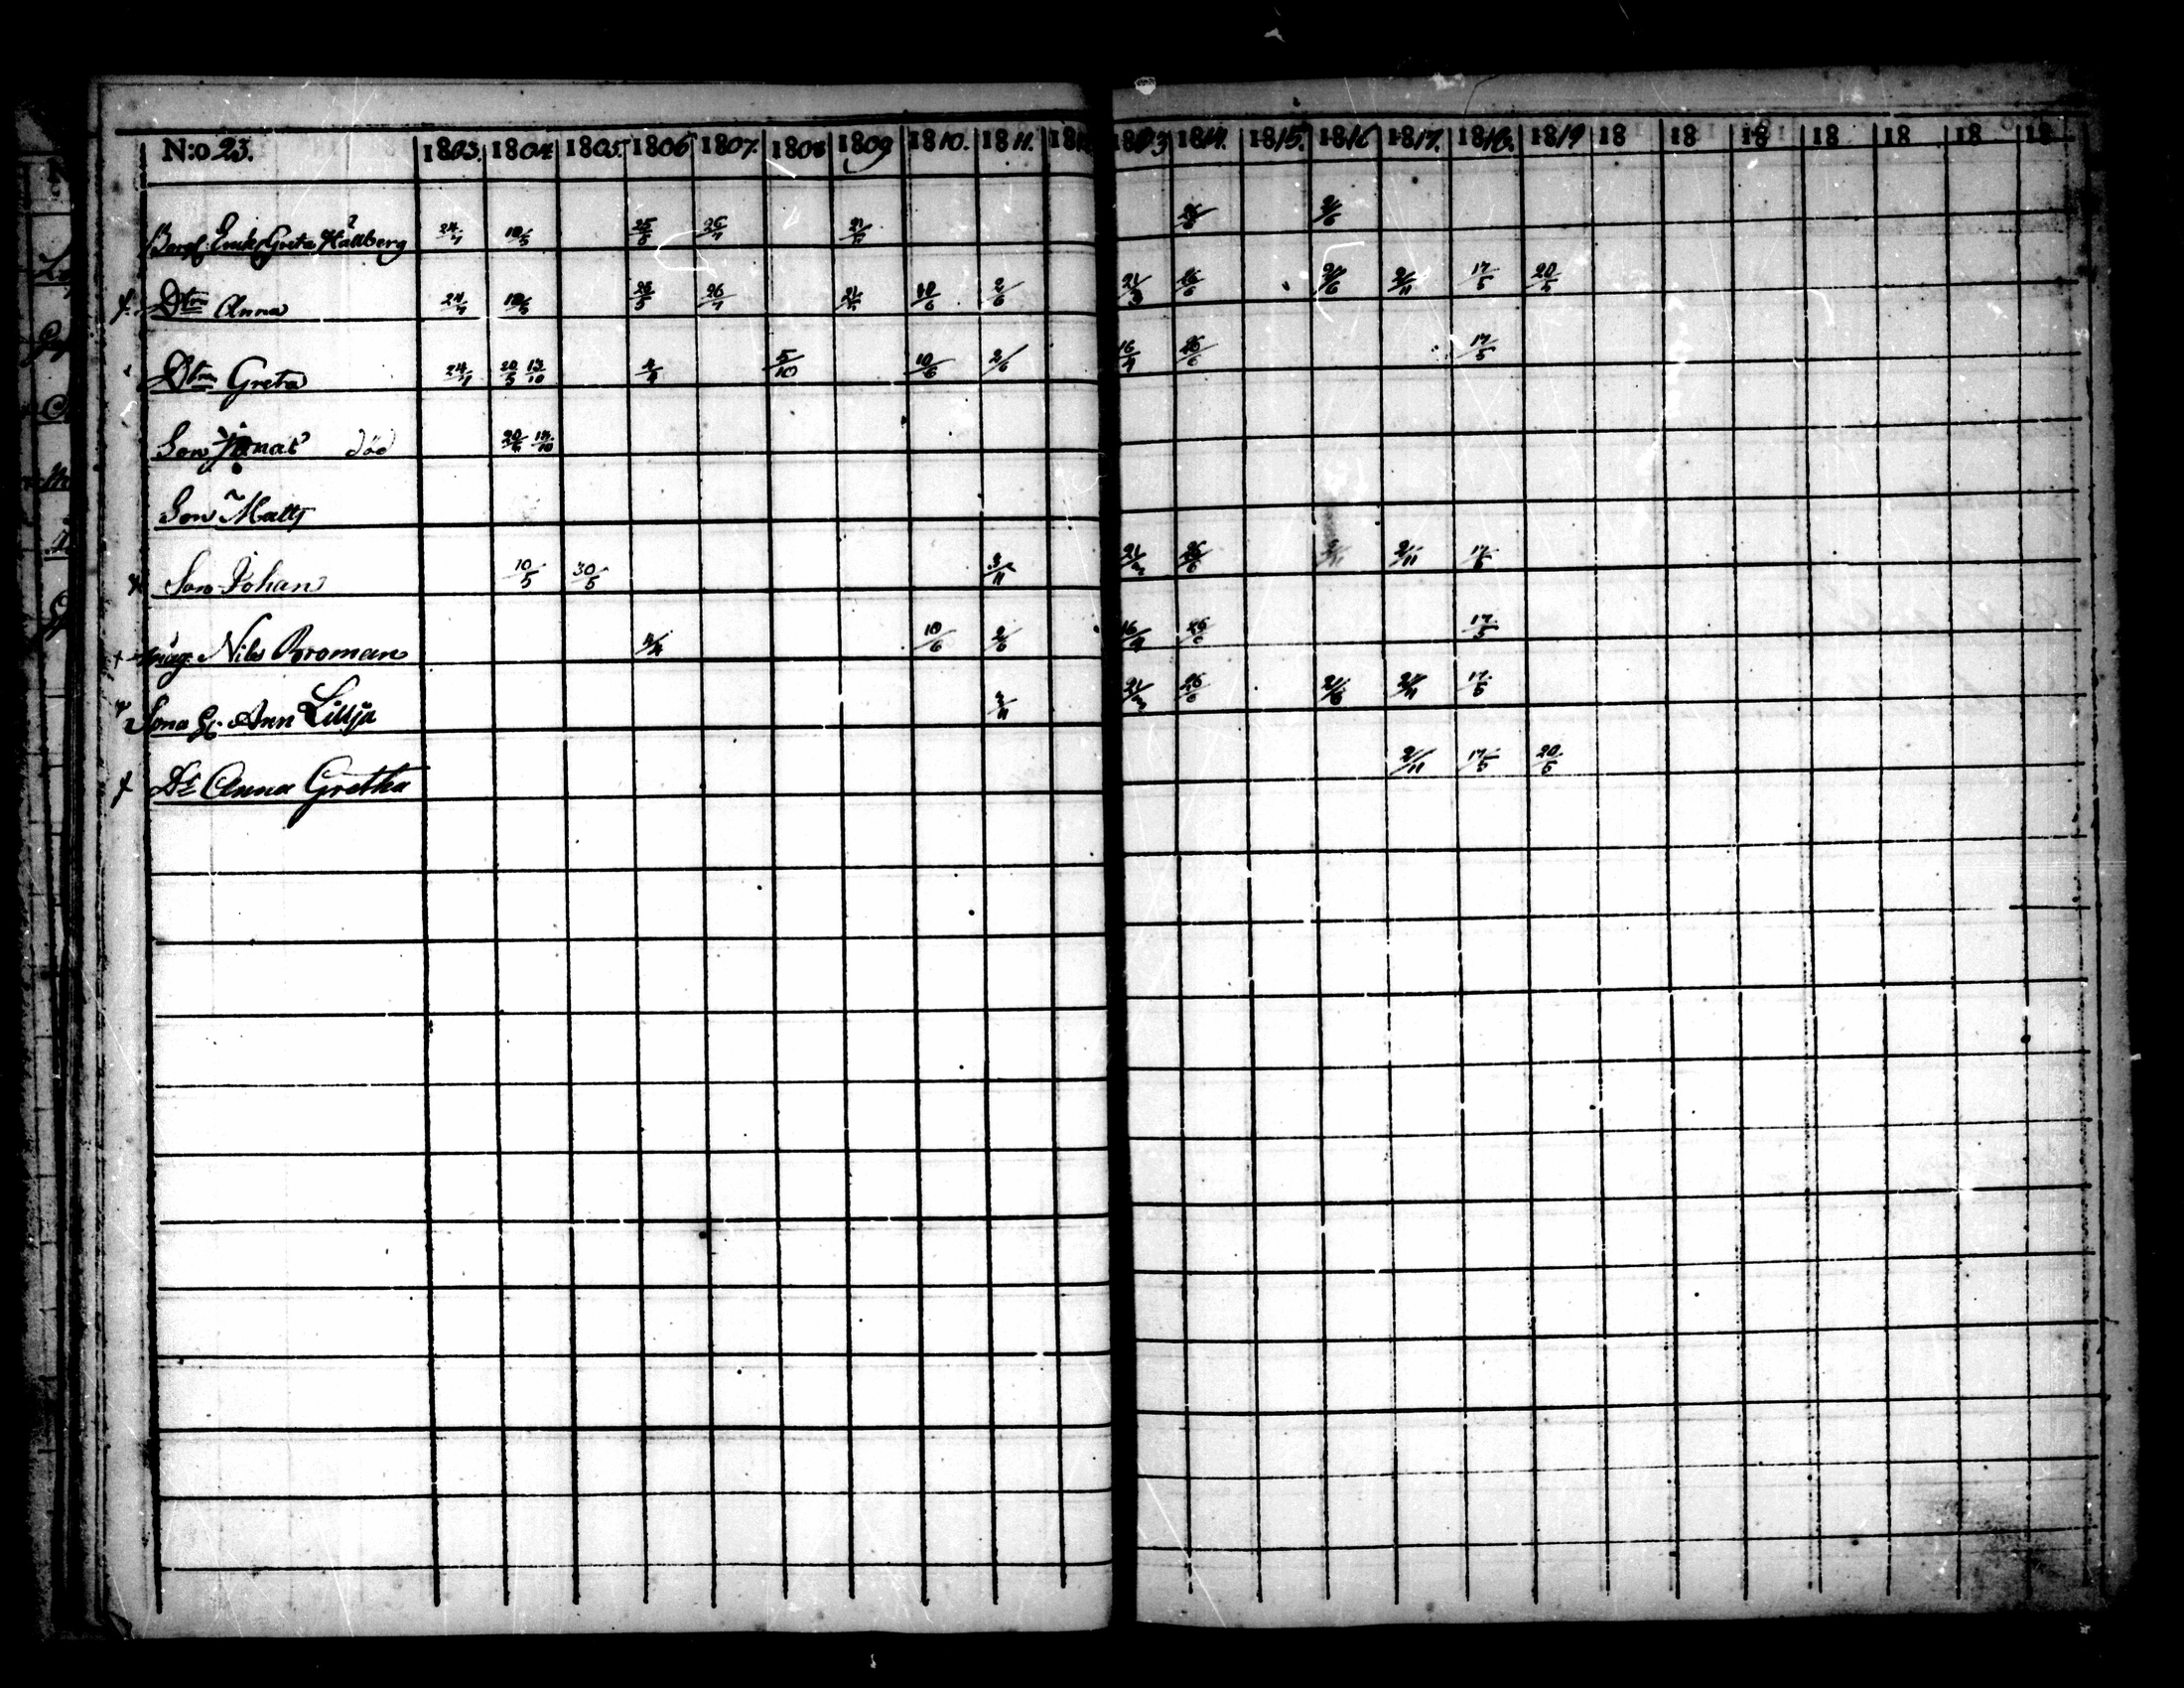 N:o 23. 1803. 1804 1805. 1806 1807. 1808 1809 1810. 1811. 181 1813 1814. 1815. 1816 1817. 1818. 1819 18 18 18 18 18 18 18
Greta Hällberg 24/7 25/5 26/7 26/6 2/6
Dtrn Anna 24/7 25/5 26/7 10/6 2/6 21/3 26/6 2/6 2/11 17/5 20/5
Dtrn Greta 24/7 20/5 13/10 4/4 5/10 10/6 2/6 16/4 26/6 17/5
Son död 20/5 13/10
Son Matts
Son Johan 10/5 30/5 3/11 21/3 26/6 2/11 17/5
Nils Broman 4/4 10/6 2/6 16/4 26/6 17/5
Ann Lillja 3/11 21/3 26/6 2/6 2/11 17/5
Dr Anna Gretha 2/11 17/5 20/5